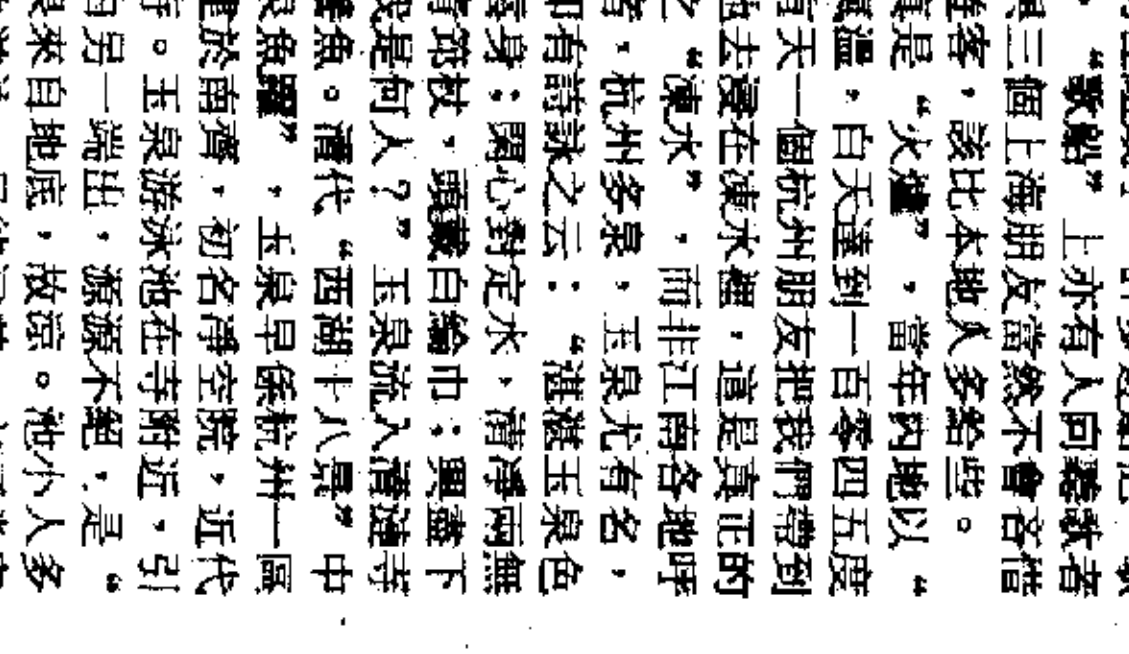 。“歌船”上亦有人回聽歌者
三個上海朋友當然不會吝惜
客，該比本地人多給些。
真是“火爐”，當年內地以“
溫，白天達到一百零四五度
有天一個杭州朋友把我們帶到
去浸在凍水裡，這是真正的
之“凍水”，而非江南各地呼
者，杭州多泉，玉泉尤有名，
即有詩詠之云：“湛湛玉泉色
身；閒心對定水，清淨兩無
筇杖，頭戴白綸巾；興盡下
我是何人？”玉泉流入清漣寺
魚。清代“西湖十八景”中
魚躍”，玉泉早係杭州一區
建於南齊，初名淨空院，近代
。玉泉游泳池在寺附近，引
另一端出，源源不絕，是“
來自地底，故涼。池小人多